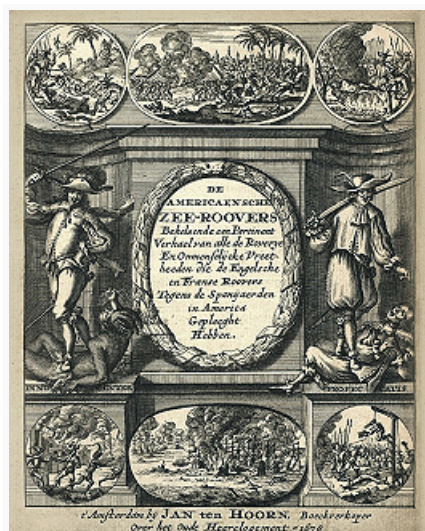 DE
AMERICAENSCHE
ZEE-ROOVERS
Behelsende een Pertinent
Verhael van alle de Roverye
En Onmenselijcke Vreet-
heeden die de Engelsche
en Franse Roovers
Tegens de Spanjaerden
in America
Gepleeght
Hebben.
t'Amsterdam by JAN ten HOORN, Boeckverkoper
Over het Oude Heerelogement 1678